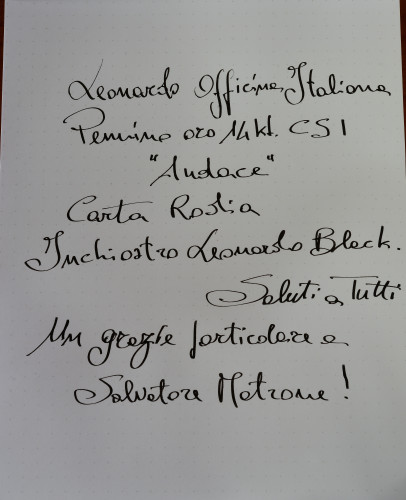 Leonardo Officina Italiana
Pennino oro 14kt. CSI
"Audace"
Carta Rodia
Inchiostro Leonardo Black.
Saluti a Tutti
Un grazie particolare a
Salvatore Matrone!